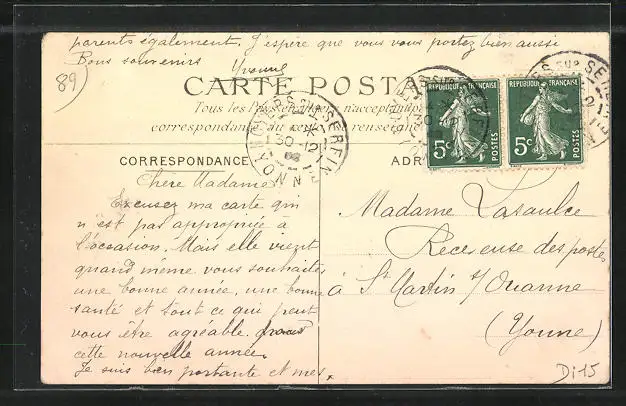 parents également. J'espère que vous vous portez bien aussi
Bons souvenirs Yvonne
89
CARTE POSTALE
Tous les pays étrangers n'acceptent pas la
correspondance au se renseigner
CORRESPONDANCE
Chère Madame
Excusez ma carte qui
n'est pas appropriée à
l'occasion. Mais elle vient
quand même vous souhaiter
une bonne année, une bonne
santé et tout ce qui peut
vous être agréable
cette nouvelle année.
Je suis bien portante et mes
ADR
Madame Lasaulce
Receveuse des postes
à St Martin s/ Ouanne
(Yonne)
REPUBLIQUE FRANÇAISE
5c
POSTES
REPUBLIQUE FRANÇAISE
5c
POSTES
SUR SEREIN
30-12
YONNE
Di15